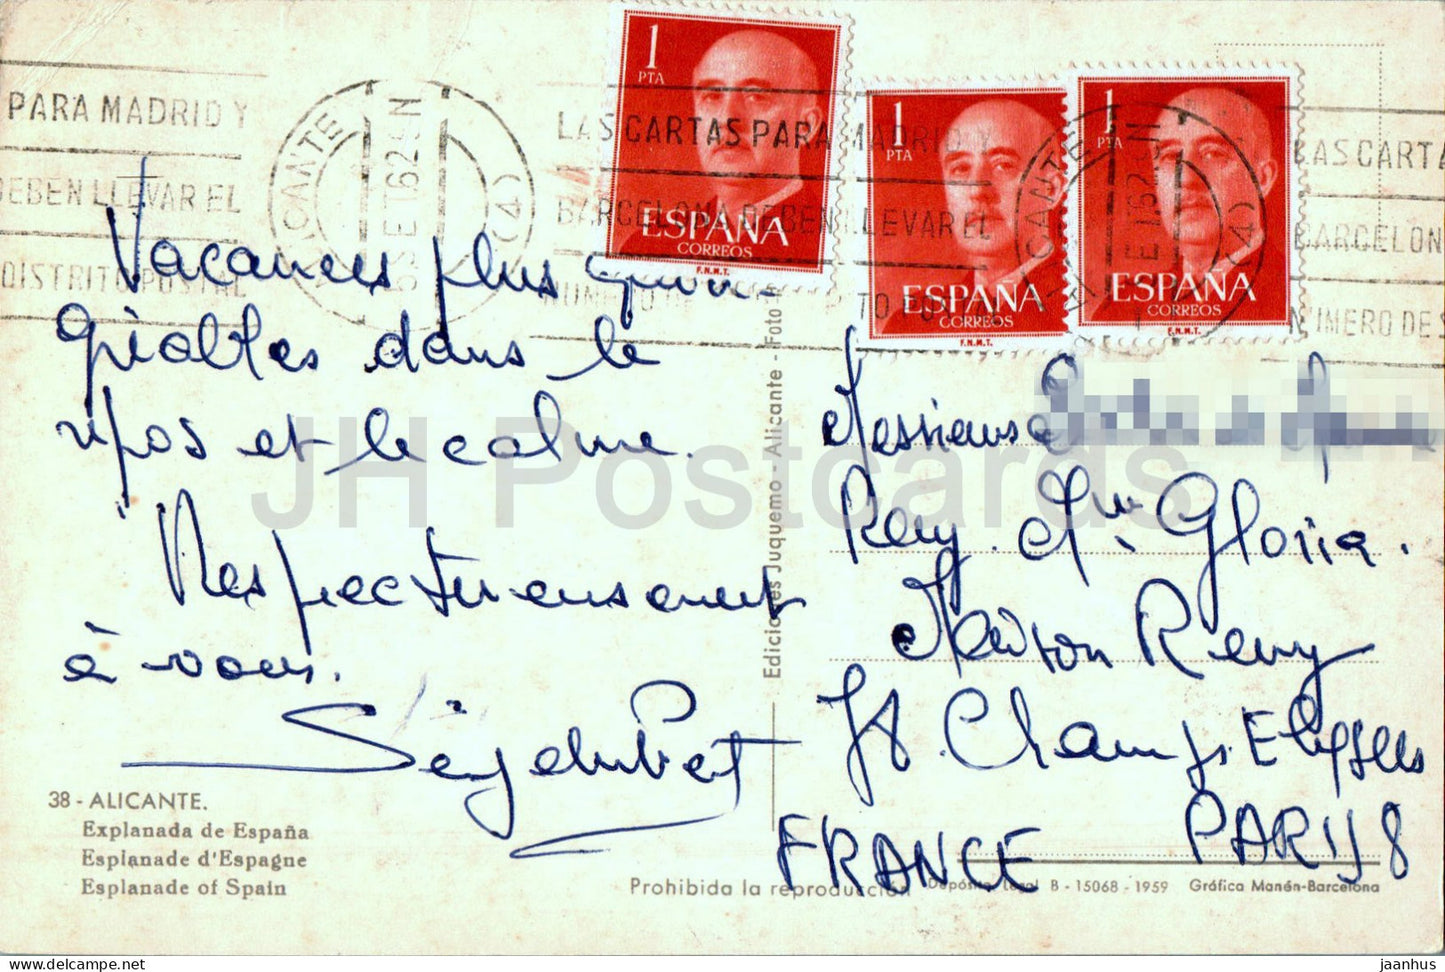 PARA MADRID Y
DEBEN LLEVAR EL
DISTRITO POSTAL
ALICANTE
(4)
LAS CARTAS PARA MADRID Y
BARCELONA DEBEN LLEVAR EL
LAS CARTA
BARCELON
NUMERO DE
1
PTA
ESPAÑA
CORREOS
F.N.M.T.
1
PTA
ESPAÑA
CORREOS
F.N.M.T.
1
PTA
ESPAÑA
CORREOS
F.N.M.T.
Vacances plus
dans le
repos et le calme.
Respectueusement
à vous.
38 - ALICANTE.
Explanada de España
Esplanade d'Espagne
Esplanade of Spain
Ediciones Juquemo - Alicante - Foto
Messieurs
Remy. Gloria.
Maison Remy
Champs. Elysees
PARIS 8
FRANCE
Prohibida la reproducción
Depósito Legal B - 15068 - 1959
Gráfica Manén-Barcelona
JH Postcards
hipstamp.com/store/jh-postcards
jaanhus